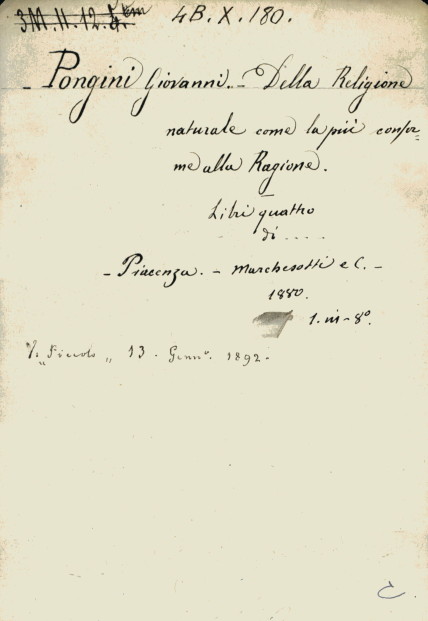 3M.II.12. 4B.X.180.
Pongini Giovanni. - Della Religione
naturale come la più confor=
me alla Ragione.
Libri quattro
di ....
- Piacenza. - Marchesotti e C. -
1880.
1. in-8°.
"Piccolo" 13. Genn°. 1892.